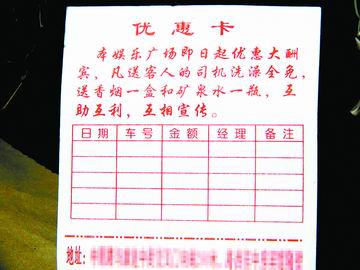 优惠卡
本娱乐广场即日起优惠大酬
宾，凡送客人的司机洗澡全免，
送香烟一盒和矿泉水一瓶，互
助互利，互相宣传。
日期 车号 金额 经理 备注
地址：